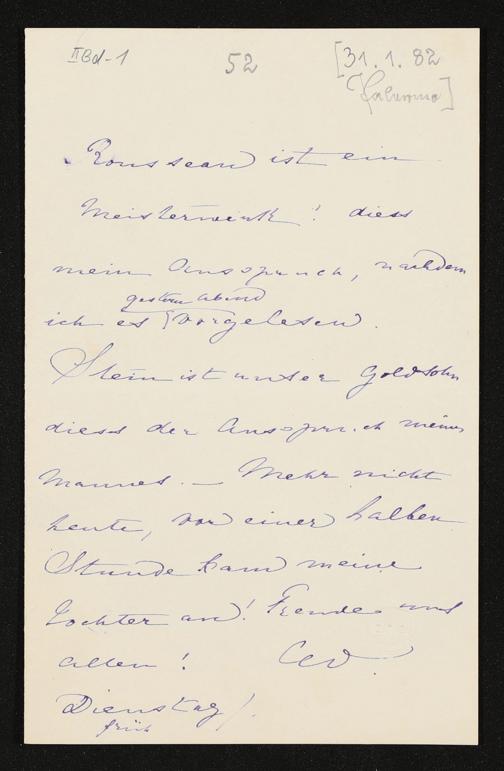 II Bd-1
52
[31. 1. 82
Palermo]
Rousseau ist ein
Meisterwerk! diess
mein Ausspruch, nachdem
gestern Abend
ich es vorgelesen.
Stein ist unser Goldsohn
diess der Ausspruch meines
Mannes. — Mehr nicht
heute, vor einer halben
Stunde kam meine
Tochter an! Freude uns
allen! CW.
Dienstag/.
früh